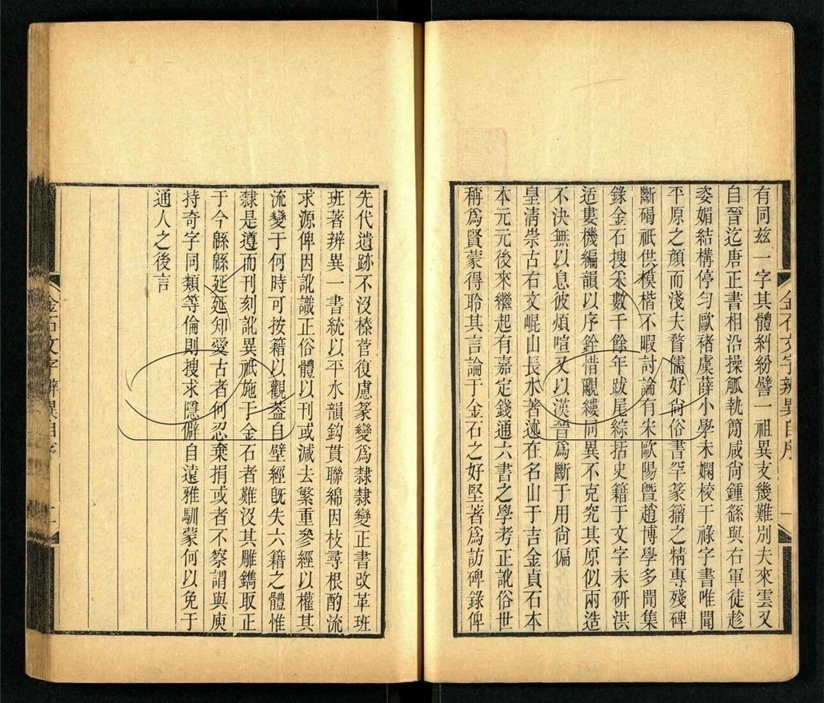 有同茲一字其體糾紛譬一祖異支幾難別夫來雲又
自晉迄唐正書相沿操觚執簡咸尙鍾繇與右軍徒趁
姿媚結構停勻歐褚虞薛小學未嫻校干祿字書唯聞
平原之顏而淺夫瞀儒好尙俗書罕篆籀之精專殘碑
斷碣祇供模楷不暇討論有宋歐陽曁趙博學多聞集
錄金石搜采數千餘年跋尾綜括史籍于文字未硏洪
适婁機編韻以序銓惜覼縷同異不克究其原似兩造
不決無以息彼煩喧又以漢晉爲斷于用尙偏
皇淸崇古右文崐山長水著述在名山于吉金貞石本
本元元後來繼起有嘉定錢通六書之學考正訛俗世
稱爲賢蒙得聆其言論于金石之好堅著爲訪碑錄俾
金石文字辨異自序
一
先代遺跡不沒榛菅復慮篆變爲隸隸變正書改革班
班著辨異一書統以平水韻鉤貫聯綿因枝尋根酌流
求源俾因訛識正俗體以刊或減去繁重參經以權其
流變于何時可按籍以觀葢自壁經旣失六籍之體惟
隸是遵而刊刻訛異祇施于金石者難沒其雕鐫取正
于今緜緜延延知愛古者何忍棄捐或者不察謂與庾
持奇字同類等倫則搜求隱僻自遠雅馴蒙何以免于
通人之後言
金石文字辨異自序
二